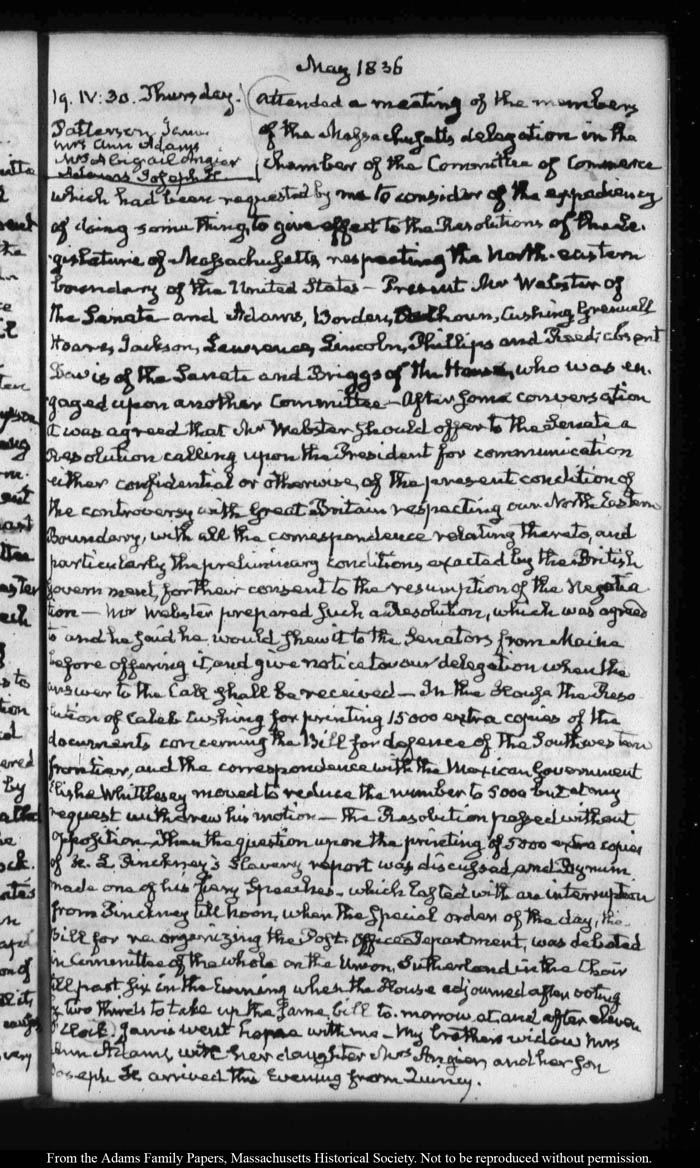 May 1836
19. IV:30. Thursday.
Patterson James
Mrs Ann Adams
Mrs Abigail Angier
Adams Joseph H.
Attended a meeting of the members
of the Massachusetts delegation in the
chamber of the Committee of Commerce
which had been requested by me to consider of the expediency
of doing something, to give effect to the Resolutions of the Le-
gislature of Massachusetts, respecting the North-eastern
boundary of the United States – Present Mr Webster of
the Senate and Adams, Borden, Calhoun, Cushing, Grennell
Hoar, Jackson, Lawrence, Lincoln, Phillips and Reed; absent
Davis of the Senate and Briggs of the House, who was en-
gaged upon another Committee – After some conversation
it was agreed that Mr Webster should offer to the Senate a
Resolution calling upon the President for communication
either confidential or otherwise, of the present condition of
the controversy with Great Britain respecting our North Eastern
Boundary, with all the correspondence relating thereto, and
particularly the preliminary conditions exacted by the British
Government, for their consent to the resumption of the Negotia
tion – Mr Webster prepared such a Resolution, which was agreed
to and he said he would shew it to the Senators from Maine
before offering it, and give notice to our delegation when the
answer to the Call shall be received – In the House the Reso
lution of Caleb Cushing for printing 15000 extra copies of the
documents concerning the Bill for defence of the Southwestern
frontier, and the correspondence with the Mexican Government
Elisha Whittlesey moved to reduce the number to 5000 but at my
request withdrew his motion – The Resolution passed without
opposition. Then the question upon the printing of 5000 extra copies
of H. L. Pinckney's Slavery report was discussed, and Bynum
made one of his fiery speeches – which lasted with an interruption
from Pinckney till noon, when the special order of the day, the
Bill for re-organizing the Post-Office Department, was debated
in Committee of the whole on the Union, Sutherland in the Chair
till past six in the Evening when the House adjourned after voting
by two thirds to take up the same bill to-morrow at and after eleven
O'Clock) Jarvis went home with me – My brother's widow Mrs
Ann Adams, with her daughter Mrs Angier, and her son
Joseph H. arrived this Evening from Quincy.
From the Adams Family Papers, Massachusetts Historical Society. Not to be reproduced without permission.